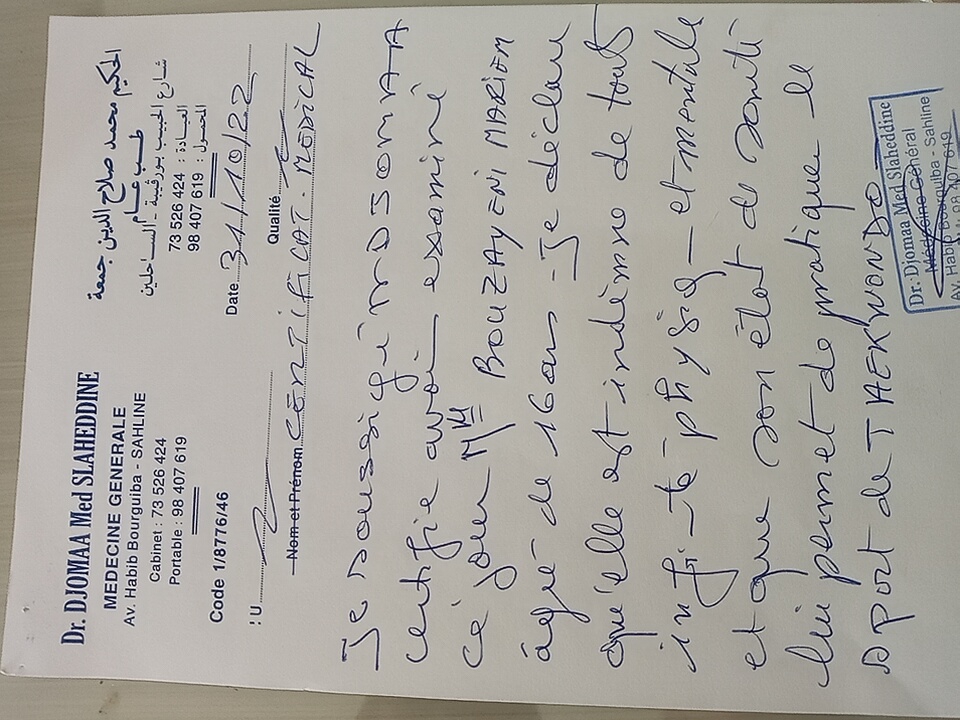 Dr. DJOMAA Med SLAHEDDINE
MEDECINE GENERALE
Av. Habib Bourguiba - SAHLINE
Cabinet : 73 526 424
Portable : 98 407 619
Code 1/8776/46
الحكيم محمد صلاح الدين جمعة
طب عام
شارع الحبيب بورقيبة - الساحلين
العيادة : 73 526 424
المحمول : 98 407 619
Date 31/10/22
: U
Qualité
Nom et Prénom CERTIFICAT - MEDICAL
Je soussigé DR DJOMAA
certifie avoir examiné
ce jour Mlle BOUZAYENI MARIEM
âgée de 16 ans - Je déclare
qu'elle est indemne de toute
infi-té physiq- et mentale
et que son état de santé
lui permet de pratique le
sport de TAEKWONDO
Dr. Djomaa Med Slaheddine
Médecine Général
Av. Habib Bourguiba - Sahline
98 407 619